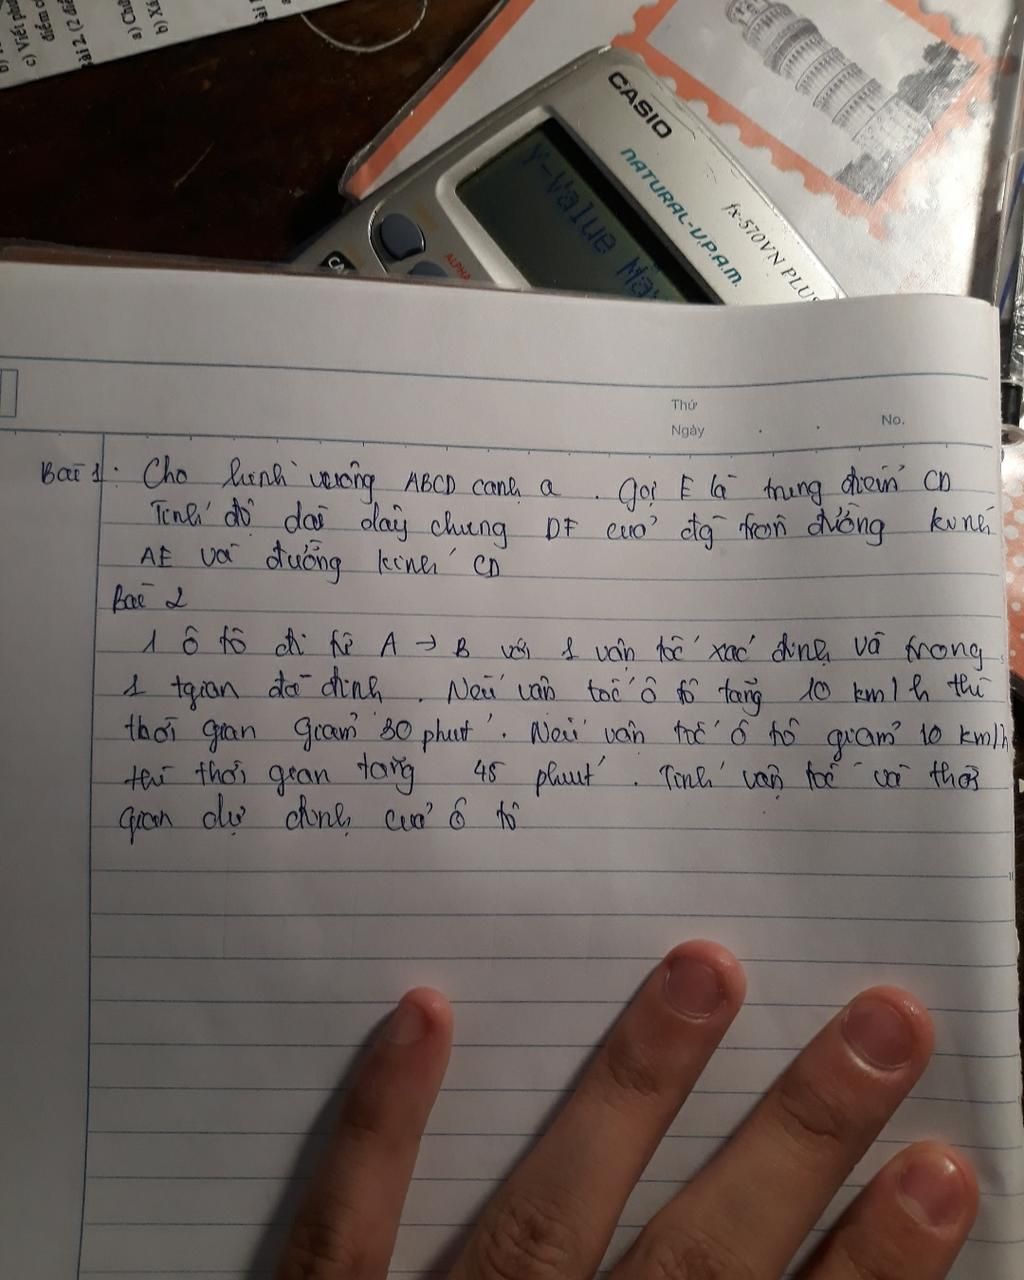 c) Viết
Bài 2. (2
a) Ch
b) Xá
CASIO
NATURAL-V.P.A.M.
fx-570VN PLUS
Y-Value Max
ALPHA
Thứ
Ngày . .
No.
Bài 1: Cho hình vuông ABCD cạnh a. Gọi E là trung điểm CD
Tính độ dài dây chung DF của đg tròn đường kính
AE và đường kính CD
Bài 2
1 ô tô đi từ A → B với 1 vận tốc xác định và trong
1 tgian đã định. Nếu vận tốc ô tô tăng 10 km/h thì
thời gian giảm 30 phút. Nếu vận tốc ô tô giảm 10 km/h
thì thời gian tăng 45 phút. Tính vận tốc và thời
gian dự định của ô tô